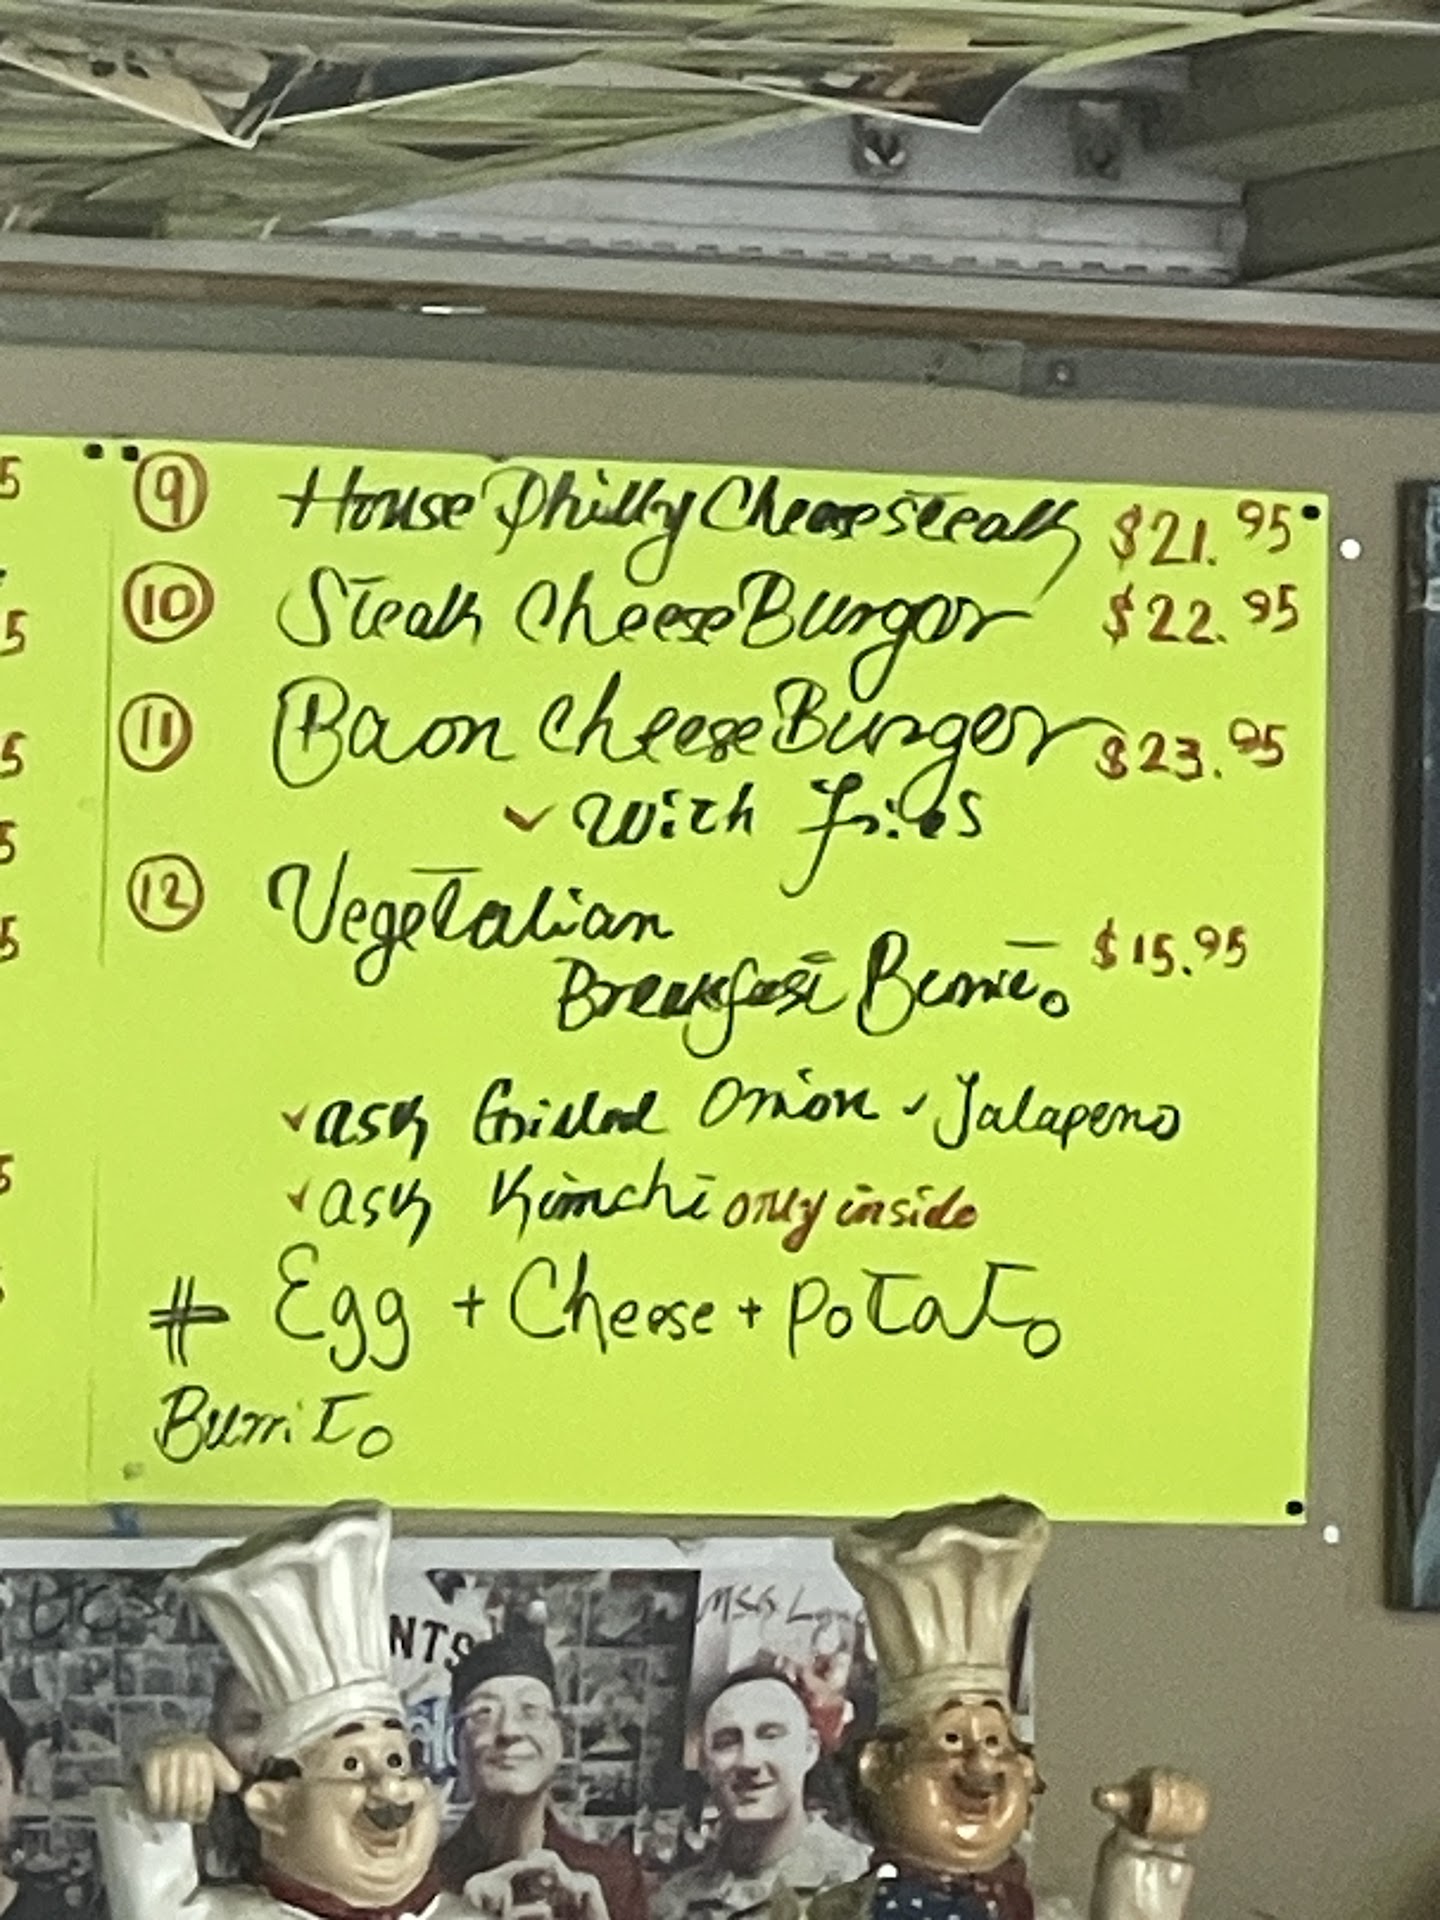 5
5
5
5
5
5
9 House Philly Cheesesteak $21.95
10 Steak Cheese Burger $22.95
11 Bacon Cheese Burger $23.95
✓ With fries
12 Vegetalian
Breakfast Burrito $15.95
✓ ask Grilled Onion ✓ Jalapeno
✓ ask Kimchi only inside
# Egg + Cheese + Potato
Burrito
NTS
MSG